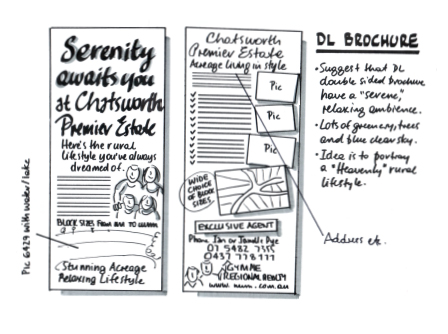 Serenity
awaits you
at Chatsworth
Premier Estate
Here's the rural
lifestyle you've always
dreamed of.
BLOCK SIZES FROM
Stunning Acreage
Relaxing Lifestyle
Pic 6429 with water/lake
Chatsworth
Premier Estate
Acreage living in style
Pic
Pic
Pic
WIDE
CHOICE
OF BLOCK
SIZES.
EXCLUSIVE AGENT
Phone Ian or
07 5482
0437 778 177
GYMPIE
REGIONAL REALTY
Address etc.
DL BROCHURE
• Suggest that DL
double sided brochure
have a "serene,"
relaxing ambience.
• Lots of greenery, trees
and blue clear sky.
• Idea is to portray
a "Heavenly" rural
lifestyle.